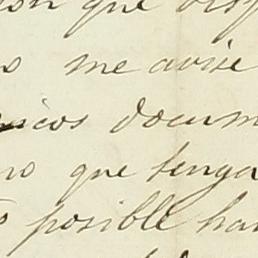 que
me avise
icos docum
no que tenga
posible ha